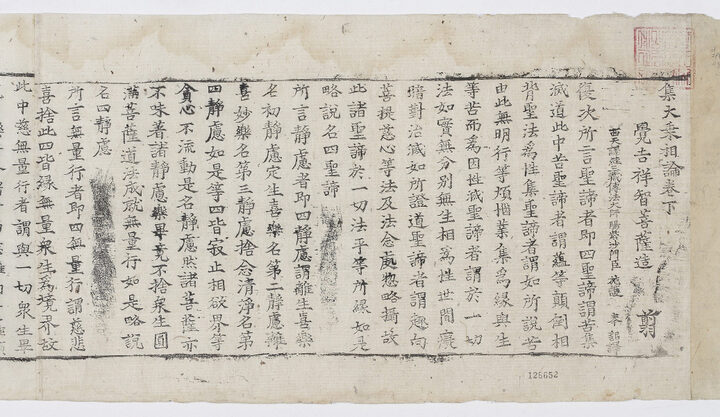 集大乘相論卷下
覺吉祥智菩薩造 剪
西天譯經三藏傳法大師賜紫沙門臣施護 奉 詔譯
復次所言聖諦者即四聖諦謂苦集
滅道此中苦聖諦者謂蘊等顛倒相
背聖法爲性集聖諦者謂如所說苦
由此無明行等煩惱業集爲緣與生
等苦而爲因性滅聖諦者謂於一切
法如實無分別無生相爲性世間癡
暗對治滅如所證道聖諦者謂趣向
菩提慈心等法及法念處揔略攝故
此諸聖諦於一切法平等所緣如是
略說名四聖諦
所言靜慮者即四靜慮謂離生喜樂
名初靜慮定生喜樂名第二靜慮離
喜妙樂名第三靜慮捨念清淨名第
四靜慮如是等四皆寂止相欲界等
貪心不流動是名靜慮然諸菩薩亦
不味著諸靜慮樂畢竟不捨衆生圓
滿菩薩道法成就無量行如是略說
名四靜慮
所言無量行者即四無量行謂慈悲
喜捨此四皆緣無量衆生爲境界故
此中慈無量行者謂與一切衆生畢
125652